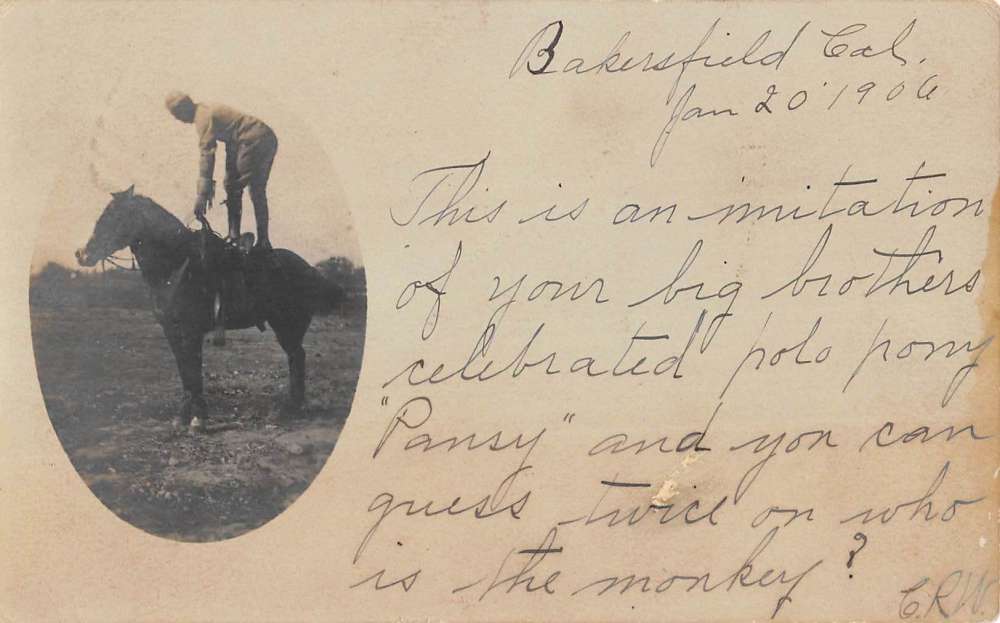 Bakersfield Cal.
Jan 20 1906
This is an imitation
of your big brothers
celebrated polo pony
"Pansy" and you can
guess twice on who
is the monkey?
C.R.W.